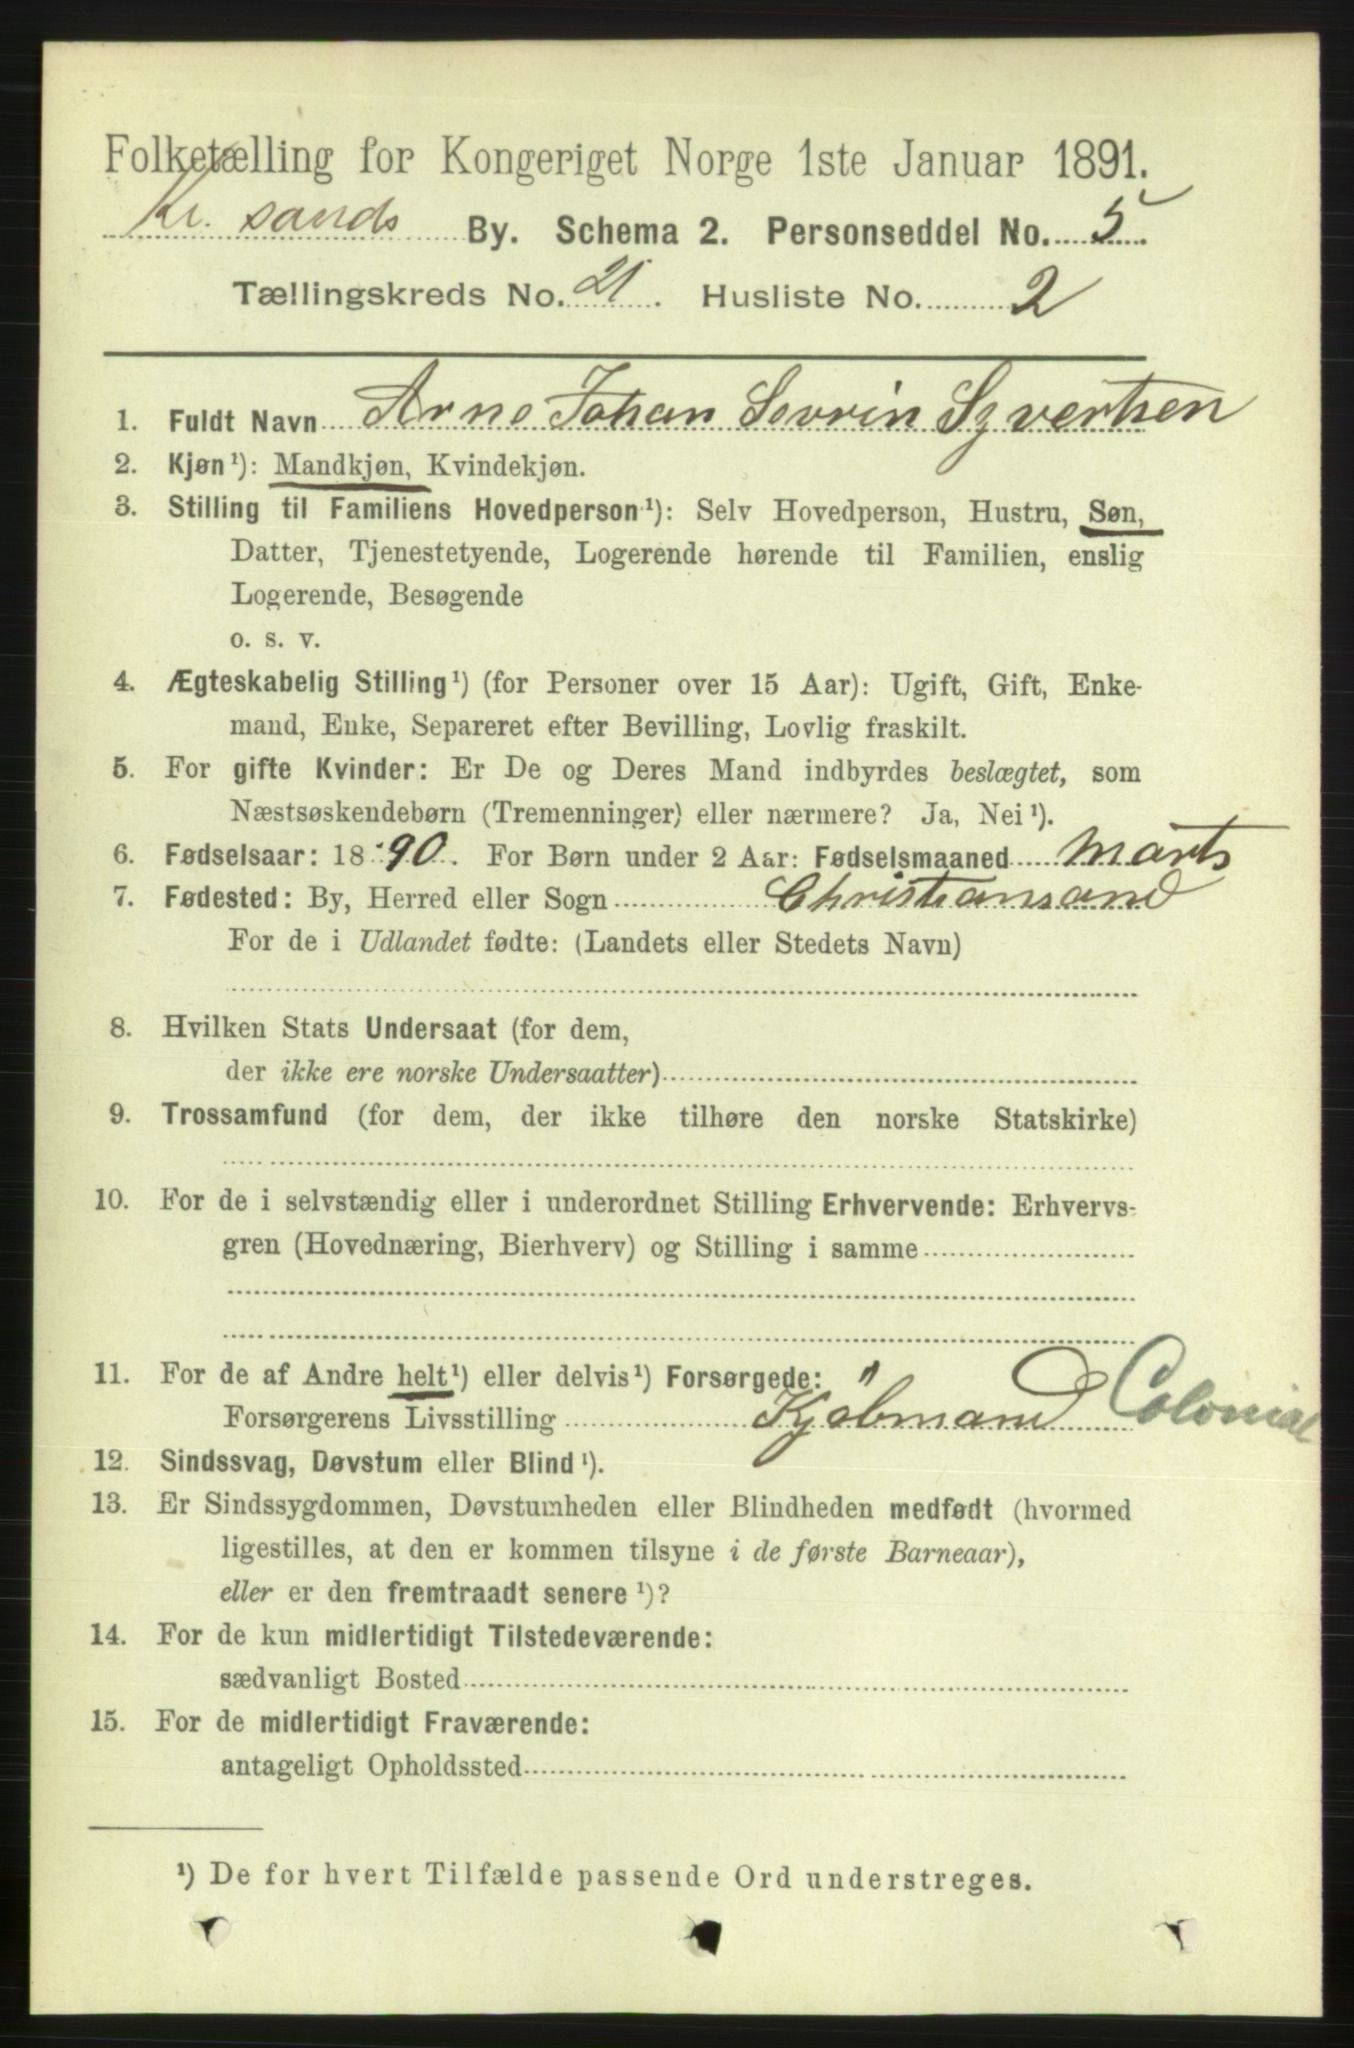 Folketælling for Kongeriget Norge 1ste Januar 1891.
Kr. sands By. Schema 2. Personseddel No. 5.
Tællingskreds No. 21. Husliste No. 2
1. Fuldt Navn Arne Johan Sevrin Syvertsen
2. Kjøn ¹): Mandkjøn, Kvindekjøn.
3. Stilling til Familiens Hovedperson ¹): Selv Hovedperson, Hustru, Søn,
Datter, Tjenestetyende, Logerende hørende til Familien, enslig
Logerende, Besøgende
o. s. v.
4. Ægteskabelig Stilling ¹) (for Personer over 15 Aar): Ugift, Gift, Enke-
mand, Enke, Separeret efter Bevilling, Lovlig fraskilt.
5. For gifte Kvinder: Er De og Deres Mand indbyrdes beslægtet, som
Næstsøskendebørn (Tremenninger) eller nærmere? Ja, Nei ¹).
6. Fødselsaar: 1890. For Børn under 2 Aar: Fødselsmaaned Marts
7. Fødested: By, Herred eller Sogn Christiansand
For de i Udlandet fødte: (Landets eller Stedets Navn)
8. Hvilken Stats Undersaat (for dem,
der ikke ere norske Undersaatter)
9. Trossamfund (for dem, der ikke tilhøre den norske Statskirke)
10. For de i selvstændig eller i underordnet Stilling Erhvervende: Erhvervs-
gren (Hovednæring, Bierhverv) og Stilling i samme
11. For de af Andre helt ¹) eller delvis ¹) Forsørgede: "
Forsørgerens Livsstilling Kjøbmand Colonial
12. Sindssvag, Døvstum eller Blind ¹).
13. Er Sindssygdommen, Døvstumheden eller Blindheden medfødt (hvormed
ligestilles, at den er kommen tilsyne i de første Barneaar),
eller er den fremtraadt senere ¹)?
14. For de kun midlertidigt Tilstedeværende:
sædvanligt Bosted
15. For de midlertidigt Fraværende:
antageligt Opholdssted
¹) De for hvert Tilfælde passende Ord understreges.